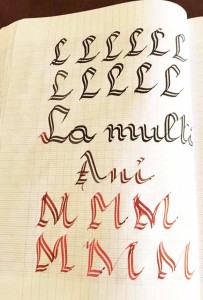 L L L L L L
L L L L L
La multi
Ani
M M M
M M M M